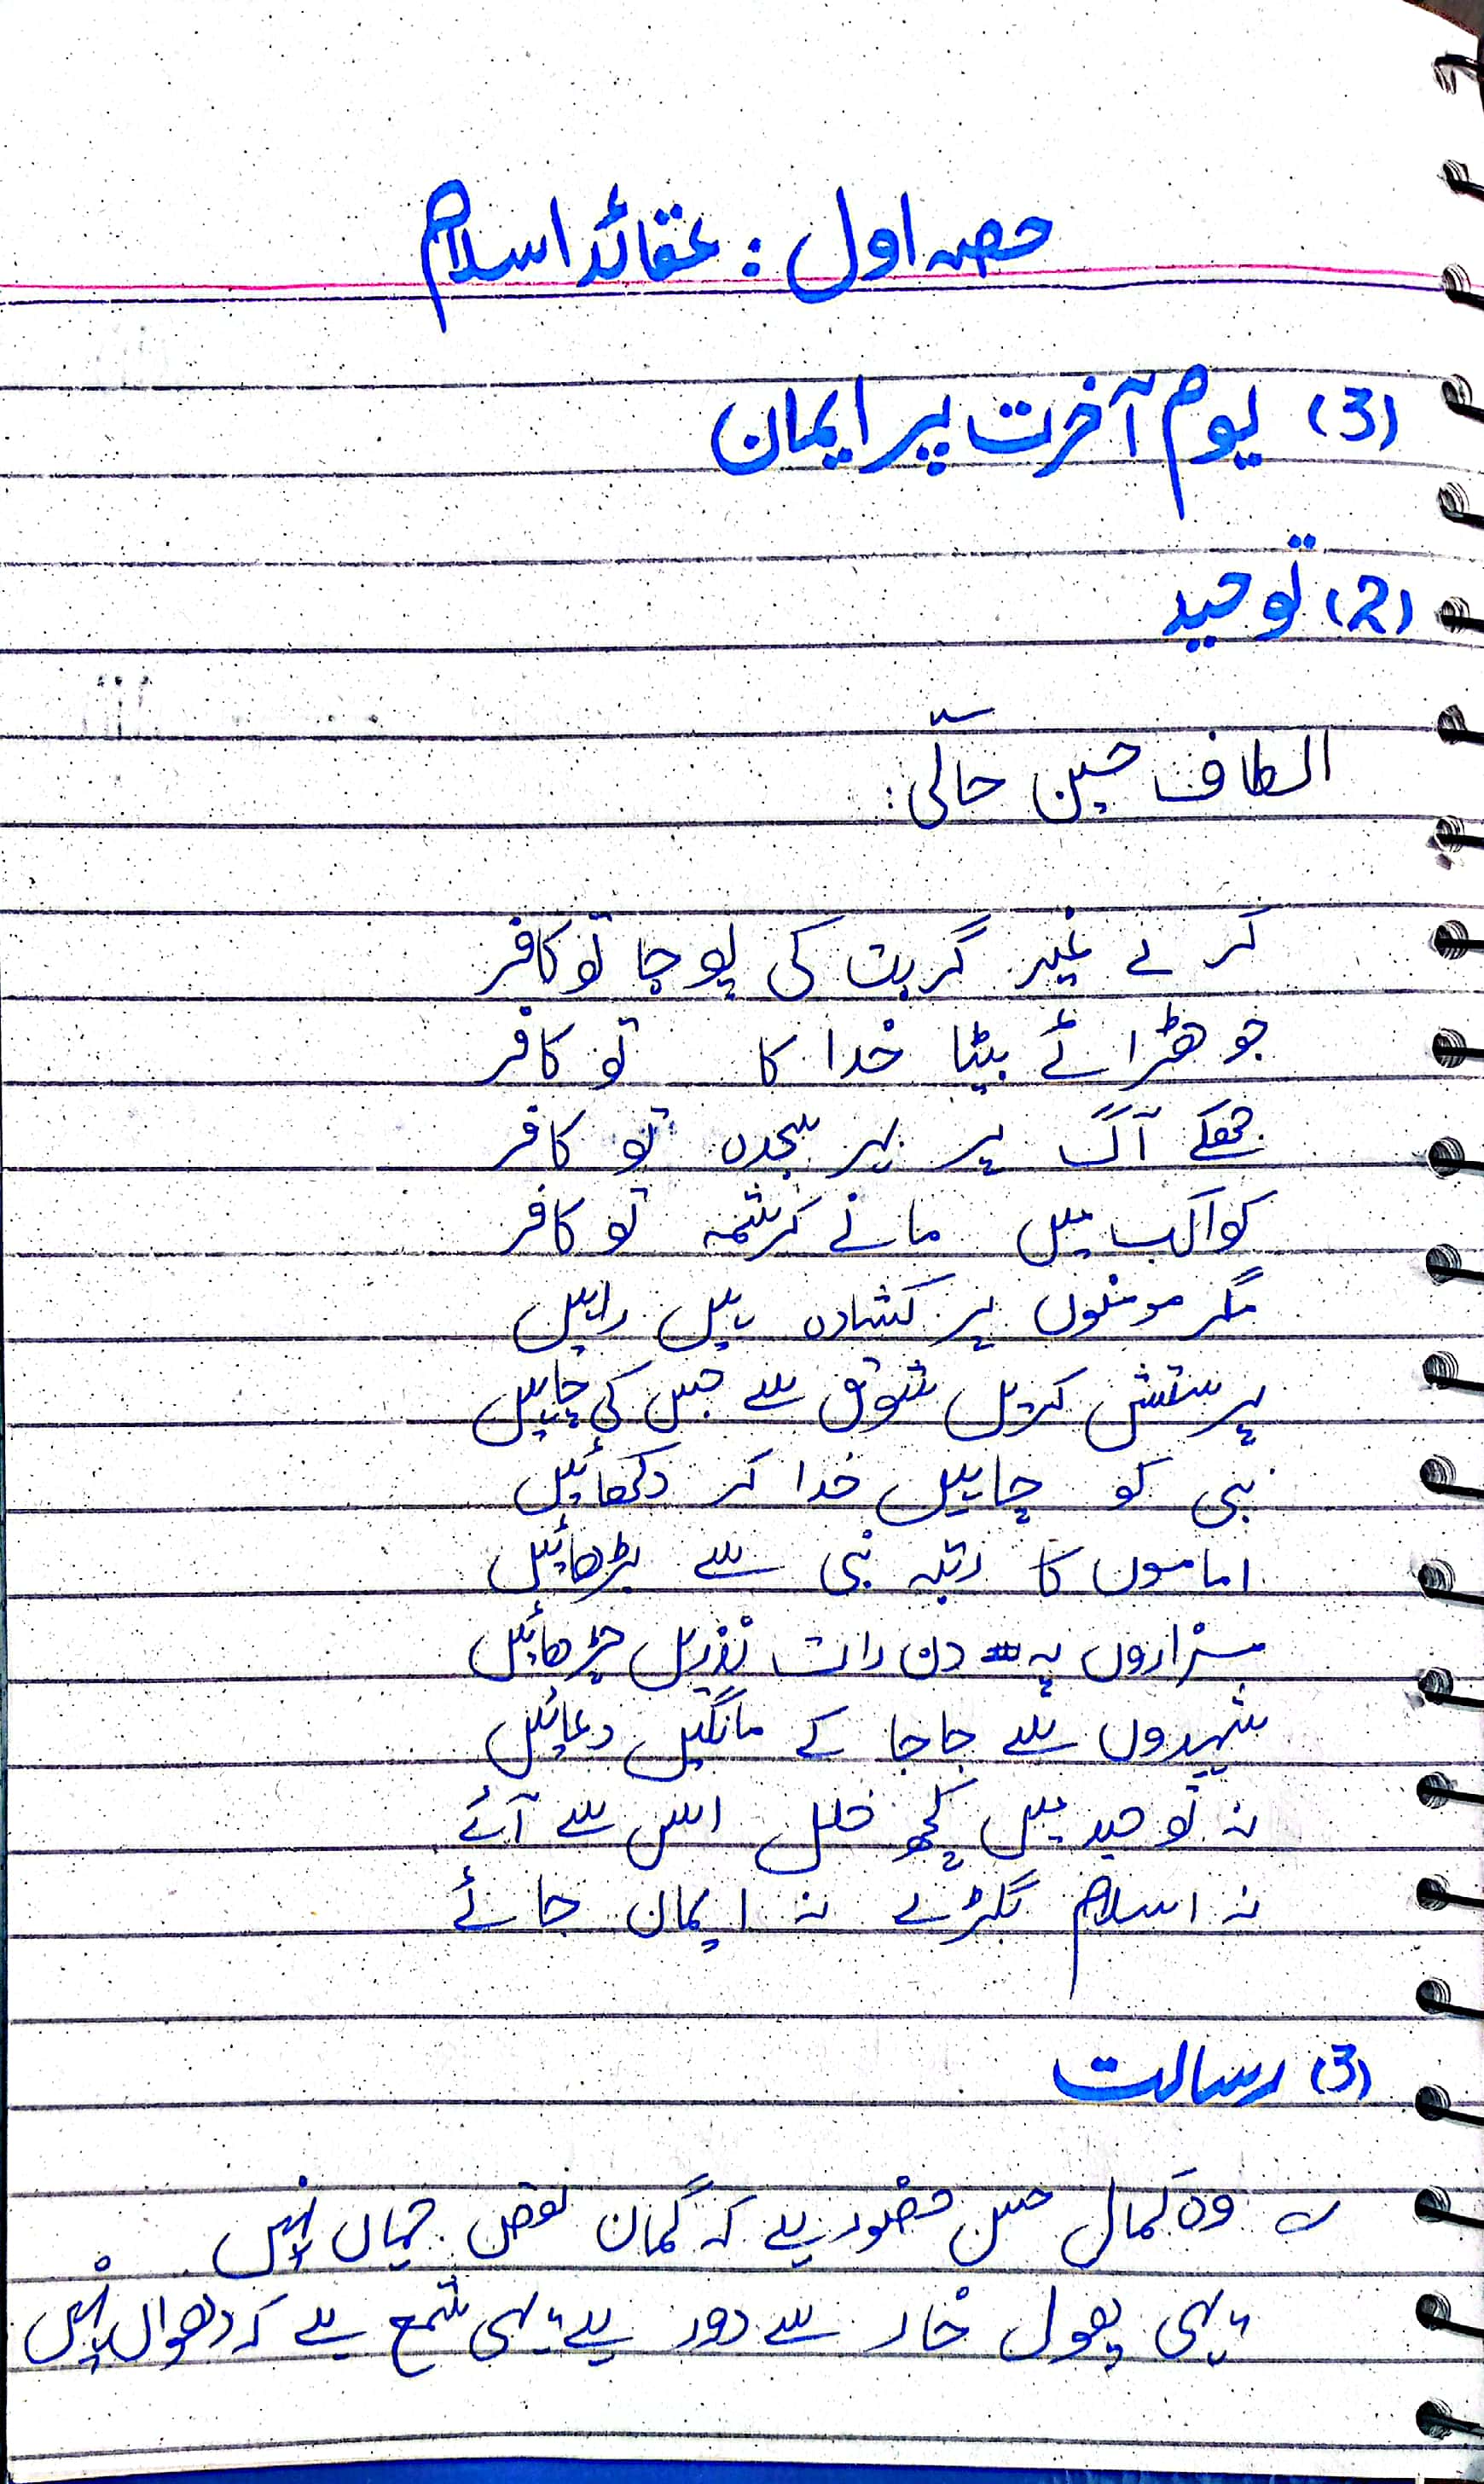 حصہ اول : عقائد اسلام
(3) یوم آخرت پر ایمان
(2) توحید
الطاف حسین حالیؔ:
کرے غیر گر بت کی پوجا تو کافر
جو ٹھرائے بیٹا خدا کا تو کافر
جھکے آگ پر بہر سجدہ تو کافر
کواکب میں مانے کرشمہ تو کافر
مگر مومنوں پر کشادہ ہیں راہیں
پرستش کریں شوق سے جس کی چاہیں
نبی کو چاہیں خدا کر دکھائیں
اماموں کا رتبہ نبی سے بڑھائیں
مزاروں پہ دن رات نذریں چڑھائیں
شہیدوں سے جا جا کے مانگیں دعائیں
نہ توحید میں کچھ خلل اس سے آئے
نہ اسلام بگڑے نہ ایمان جائے
(3) رسالت
وہ کمال حسن حضور ہے کہ گمان نقص جہاں نہیں
یہی پھول خار سے دور ہے یہی شمع ہے کہ دھواں نہیں